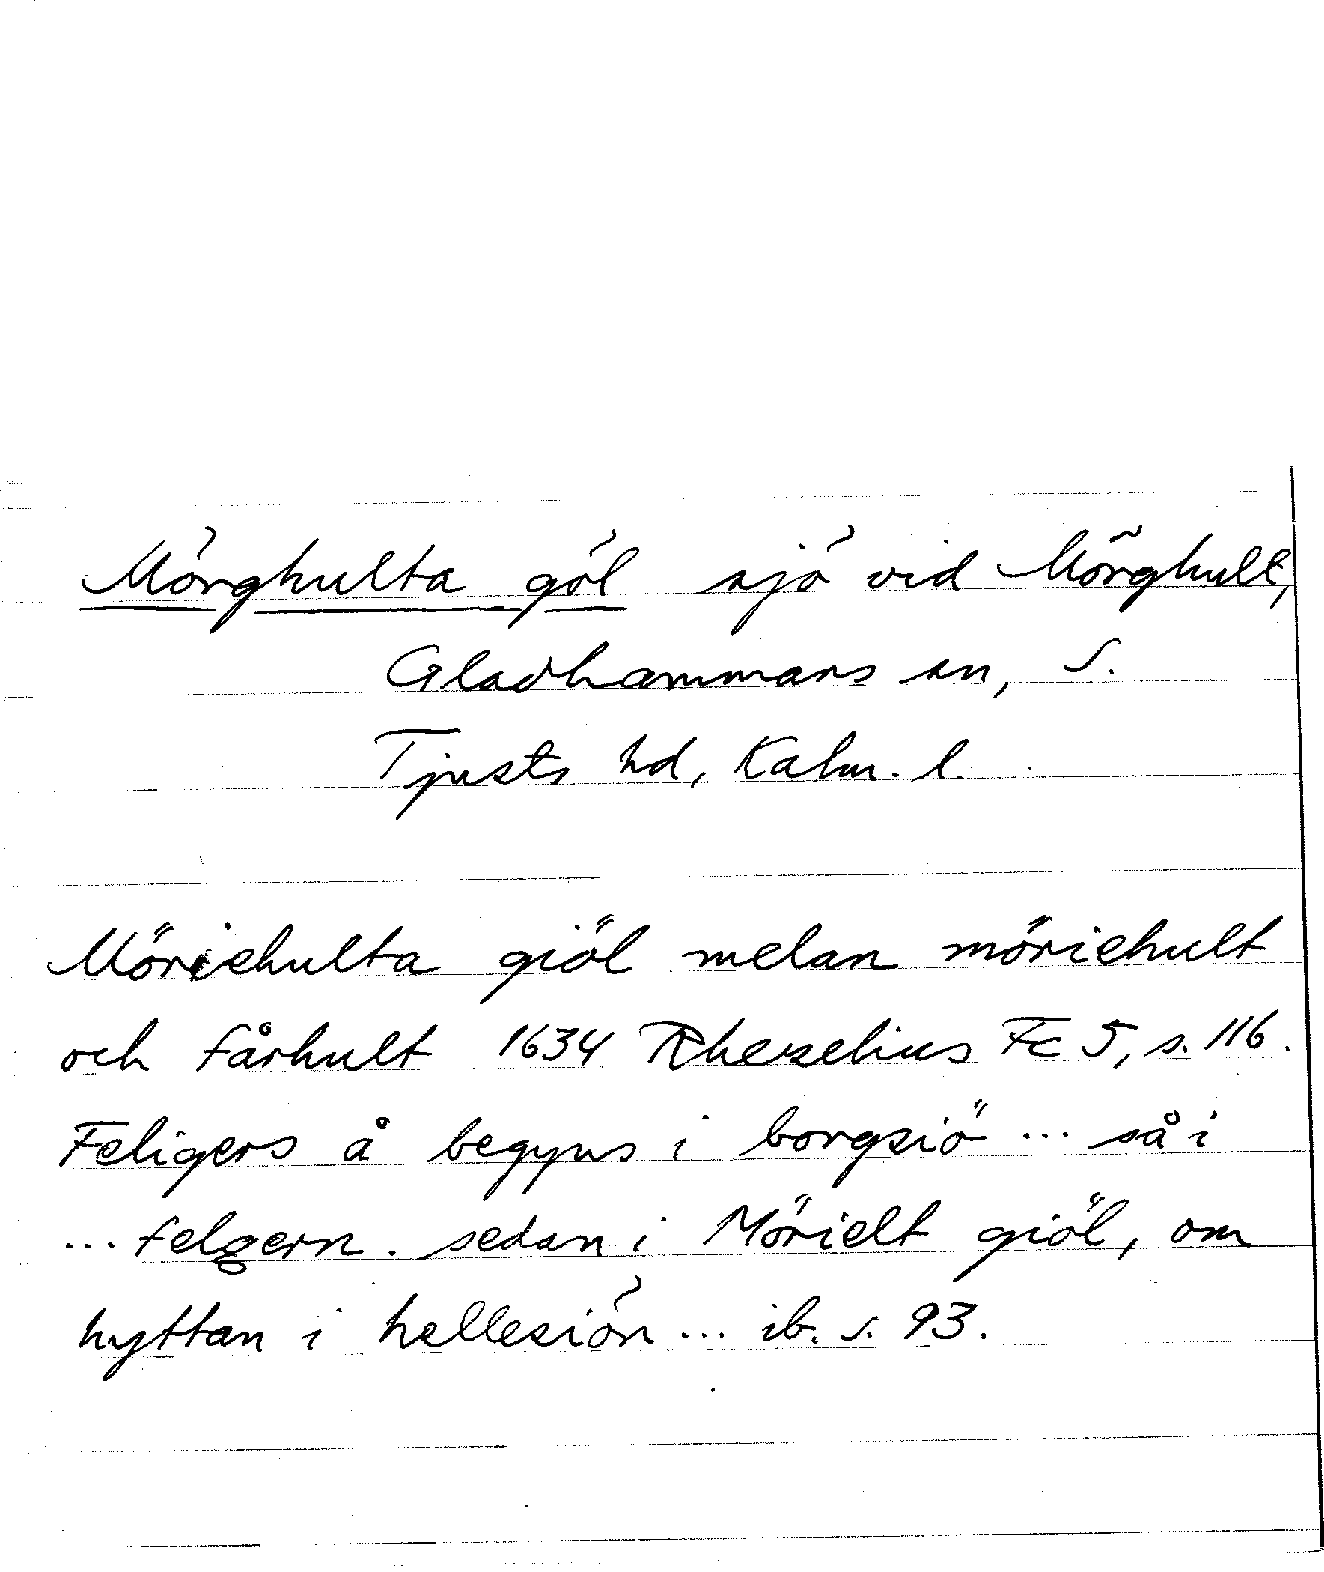 Mörghulta göl sjö vid Mörghult,
Gladhammars sn, S.
Tjusts hd, Kalm. l.
Möriehulta giöl melan möriehult
och fårhult 1634 Rhezelius Fc 5, s. 116.
Feligers å begyns i borgsiö ... så i
... felgern. sedan i Mörielt giöl, om
hyttan i hellesiön ... ib. s. 93.